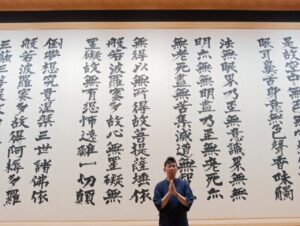 是故空中無色無受想行識無
眼耳鼻舌身意無色聲香味觸
法無眼界乃至無意識界無無
明亦無無明盡乃至無老死亦
無老死盡無苦集滅道無智亦
無得以無所得故菩提薩埵依
般若波羅蜜多故心無罣礙無
罣礙故無有恐怖遠離一切顛
倒夢想究竟涅槃三世諸佛依
般若波羅蜜多故得阿耨多羅
三藐三菩提故